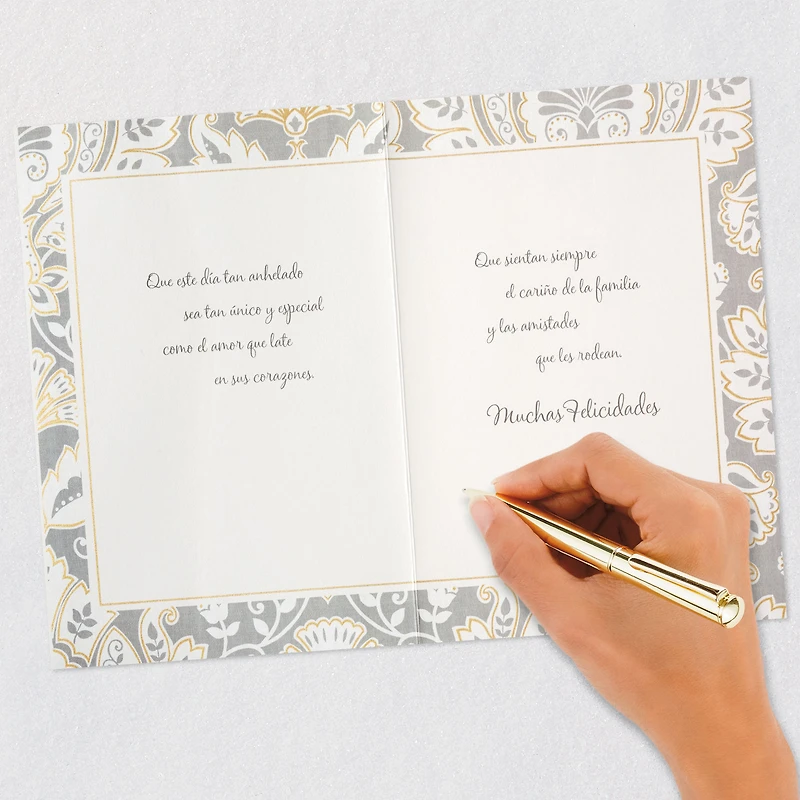 Que este día tan anhelado
sea tan único y especial
como el amor que late
en sus corazones.
Que sientan siempre
el cariño de la familia
y las amistades
que les rodean.
Muchas Felicidades